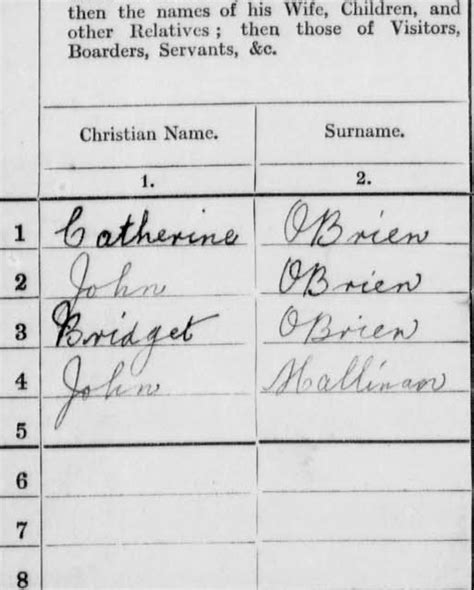 then the names of his Wife, Children, and
other Relatives; then those of Visitors,
Boarders, Servants, &c.
Christian Name. Surname.
1. 2.
1 Catherine OBrien
2 John OBrien
3 Bridget OBrien
4 John Hallinan
5
6
7
8